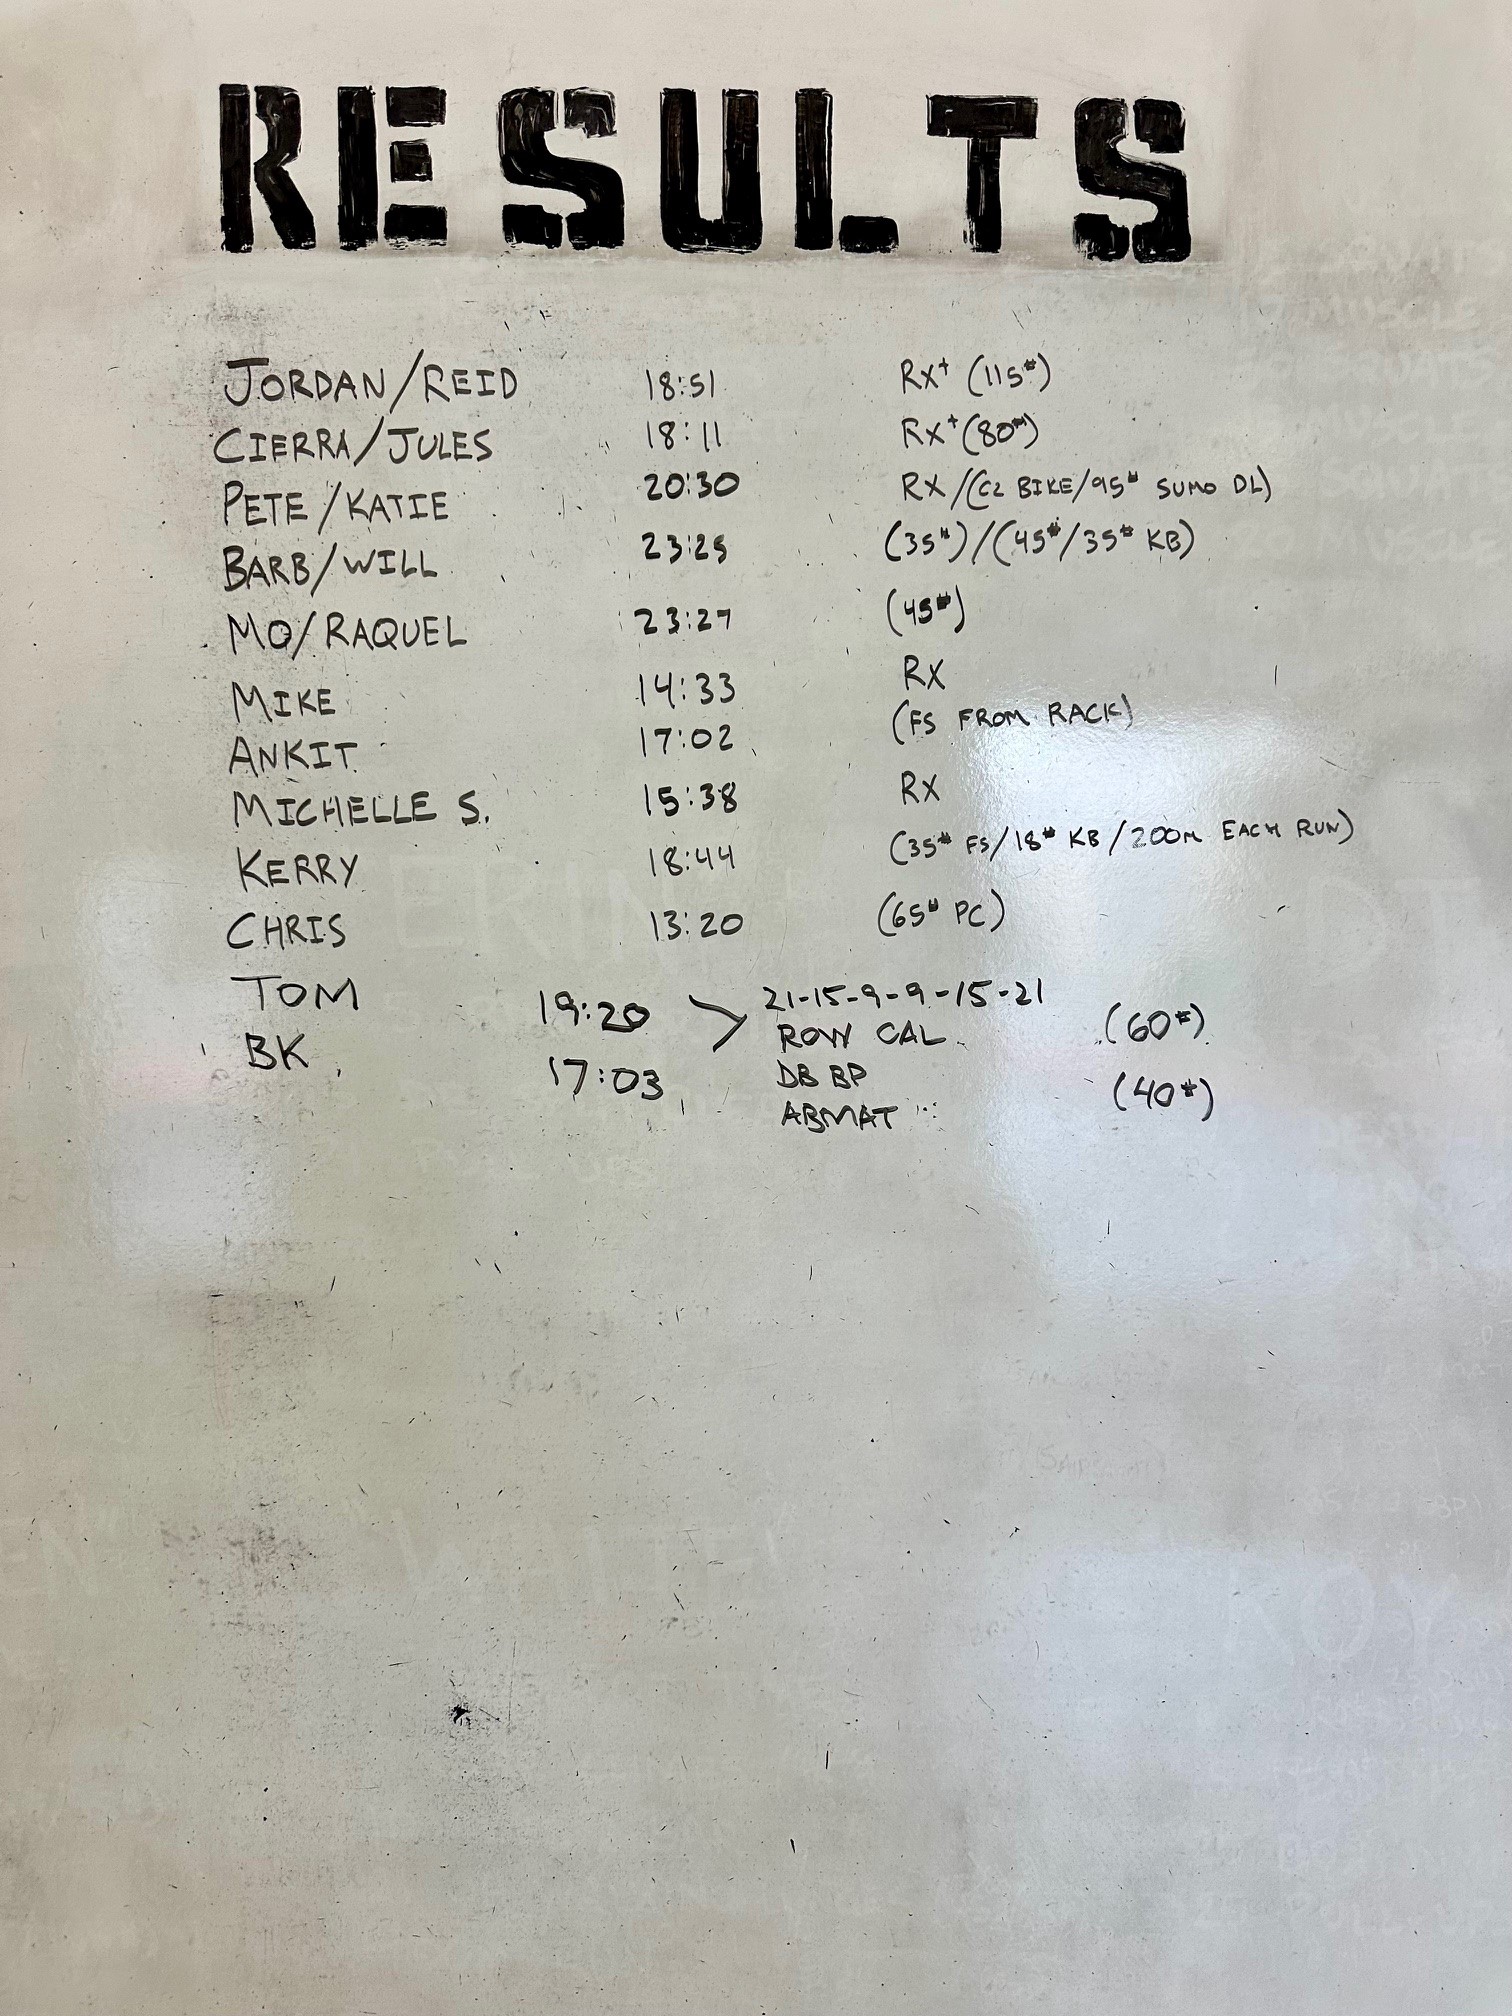 RESULTS
JORDAN/REID 18:51 RX+ (115#)
CIERRA/JULES 18:11 RX+ (80#)
PETE/KATIE 20:30 RX/(C2 BIKE/95# SUMO DL)
BARB/WILL 23:25 (35#)/(45#/35# KB)
MO/RAQUEL 23:27 (45#)
MIKE 14:33 RX
ANKIT 17:02 (FS FROM RACK)
MICHELLE S. 15:38 RX
KERRY 18:44 (35# FS/18# KB/200M EACH RUN)
CHRIS 13:20 (65# PC)
TOM 19:20 > 21-15-9-9-15-21
ROW CAL (60#)
BK 17:03 DB BP (40#)
ABMAT